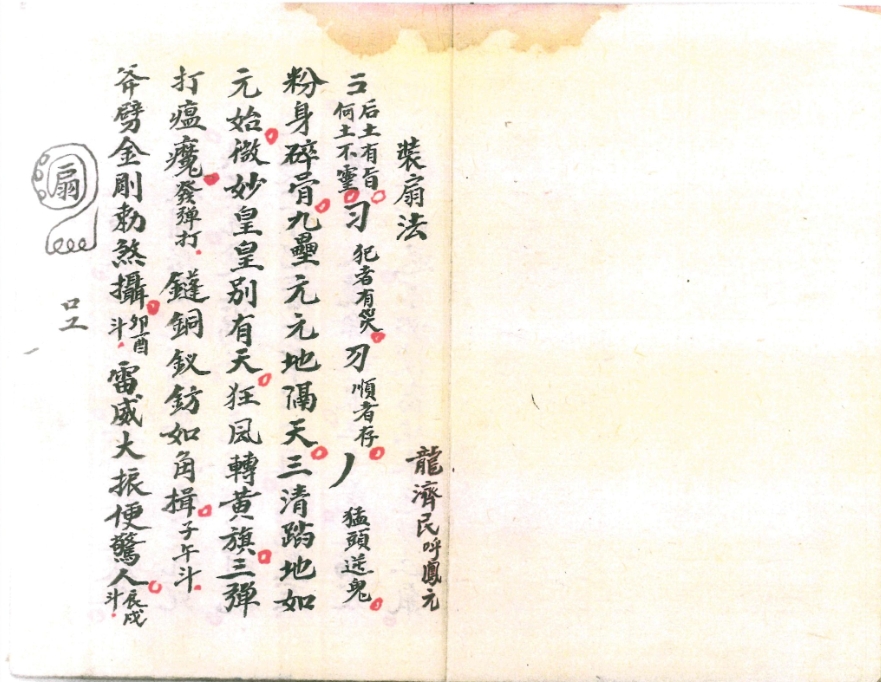 裝扇法
龍濟民呼鳳元
后土有旨
何土不靈
犯者有災
順者存
猛頭送鬼
粉身碎骨九壘元元地隔天三清踏地如
元始微妙皇皇別有天狂風轉黃旗三彈
打瘟魔發彈打 鎚銅釵鈁如角揖子午斗
斧劈金剛勅煞攝卯酉斗雷威大振便驚人辰戌斗
扇